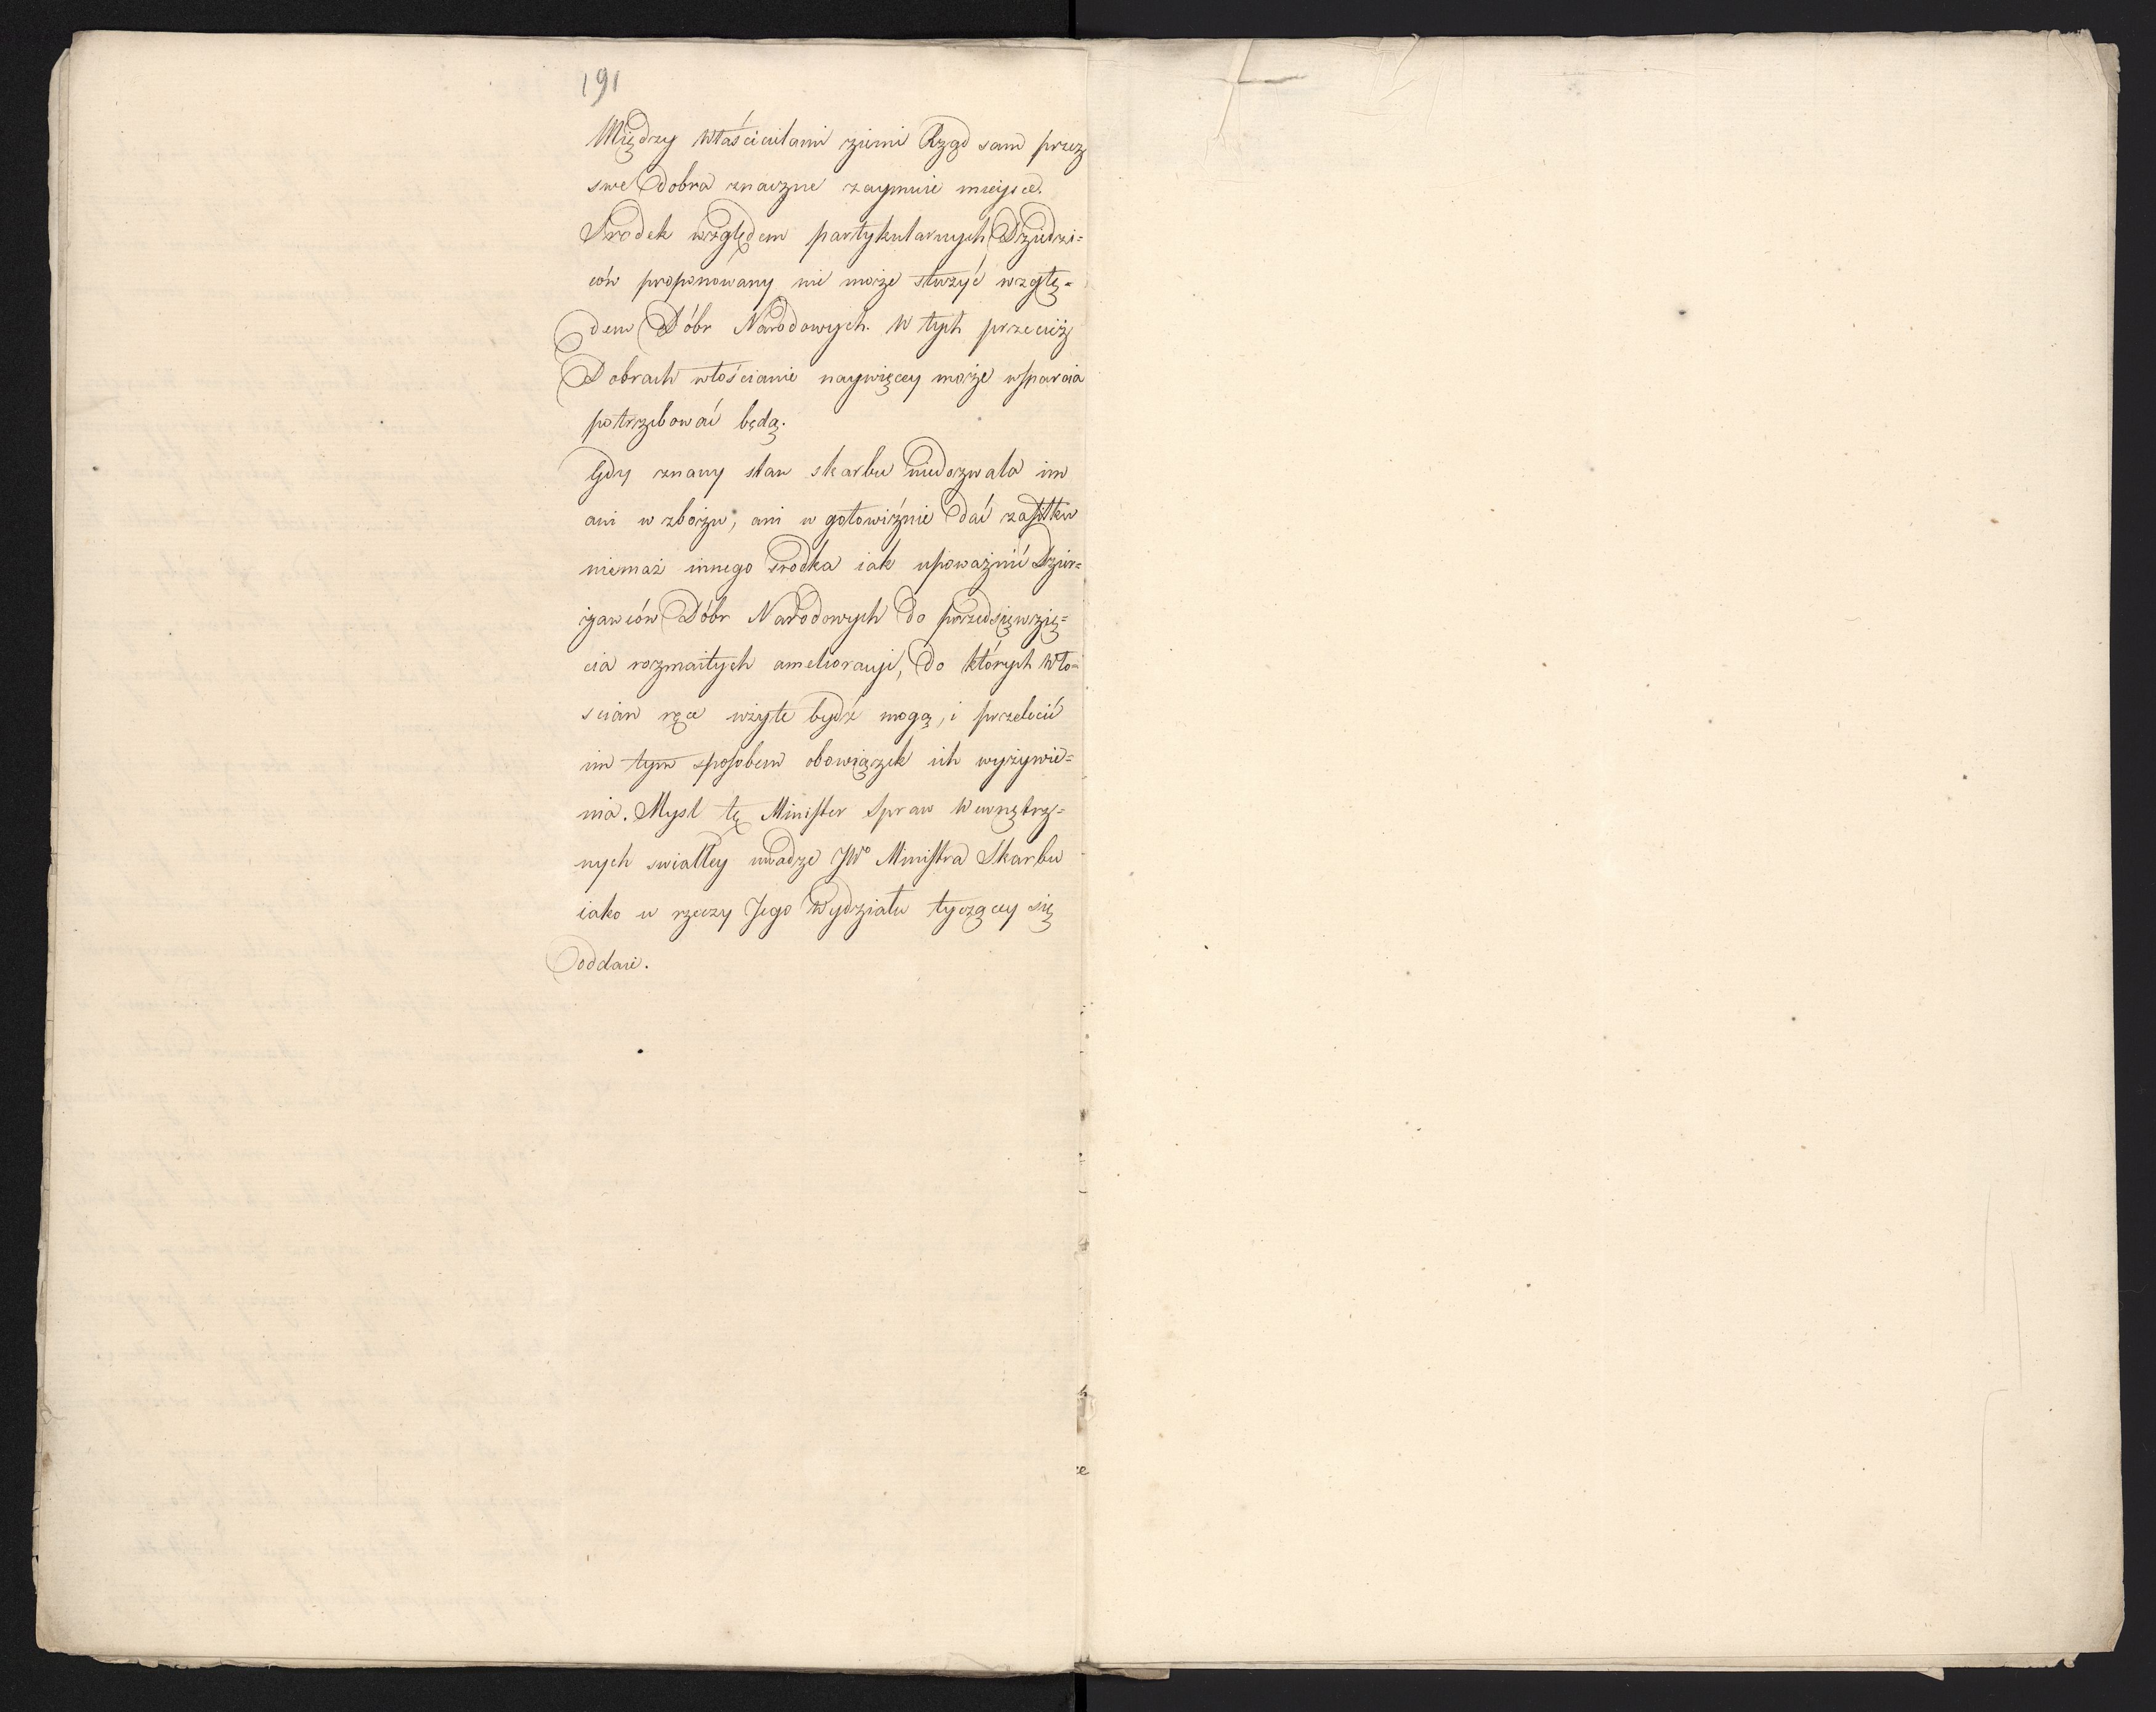 191
Między Właścicielami ziemi Rząd sam przez
swe Dobra znaczne zaymuie mieysce.
Srodek względem partykularnych Dziedzi=
ców proponowany nie może służyć wzglę=
dem Dóbr Narodowych. W tych przecież
Dobrach włościanie naywięcey może wsparcia
potrzebować będą.
Gdy znany stan skarbu niedozwala im
ani w zbożu, ani w gotowiźnie dać zasiłku
niemasz innego srodka iak upoważnić Dzier=
żawców Dóbr Narodowych do przedsięwzię=
cia rozmaitych amelioracyi, do których Wło=
scian ręce użyte bydź mogą, i przelecić
im tym sposobem obowiązek ich wyżywie=
nia. Mysl tę Minister Spraw Wewnętrz=
nych swiatłey uwadze JWo Ministra Skarbu
iako w rzeczy Jego Wydziału tyczącey się
oddaie.